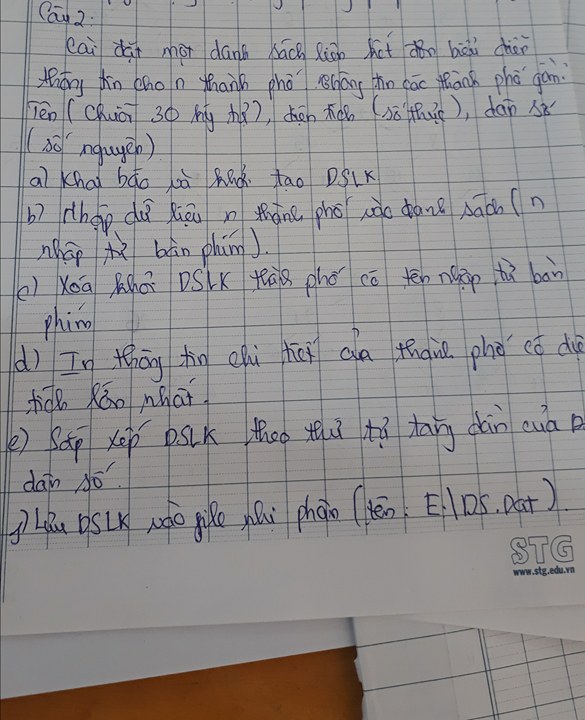 Câu 2:
Cài đặt một danh sách liên kết đơn biểu diễn
thông tin cho n thành phố thông tin các thành phố gồm:
Tên (chuỗi 30 ký tự), diện tích (số thực), dân số
(số nguyên)
a) Khai báo và khởi tạo DSLK
b) Nhập dữ liệu n thành phố vào danh sách (n
nhập từ bàn phím).
c) Xóa khỏi DSLK thành phố có tên nhập từ bàn
phím
d) In thông tin chi tiết của thành phố có diện
tích lớn nhất.
e) Sắp xếp DSLK theo thứ tự tăng dần của
dân số.
f) Lưu DSLK vào file nhị phân (tên: E:\DS.Dat).
STG
www.stg.edu.vn